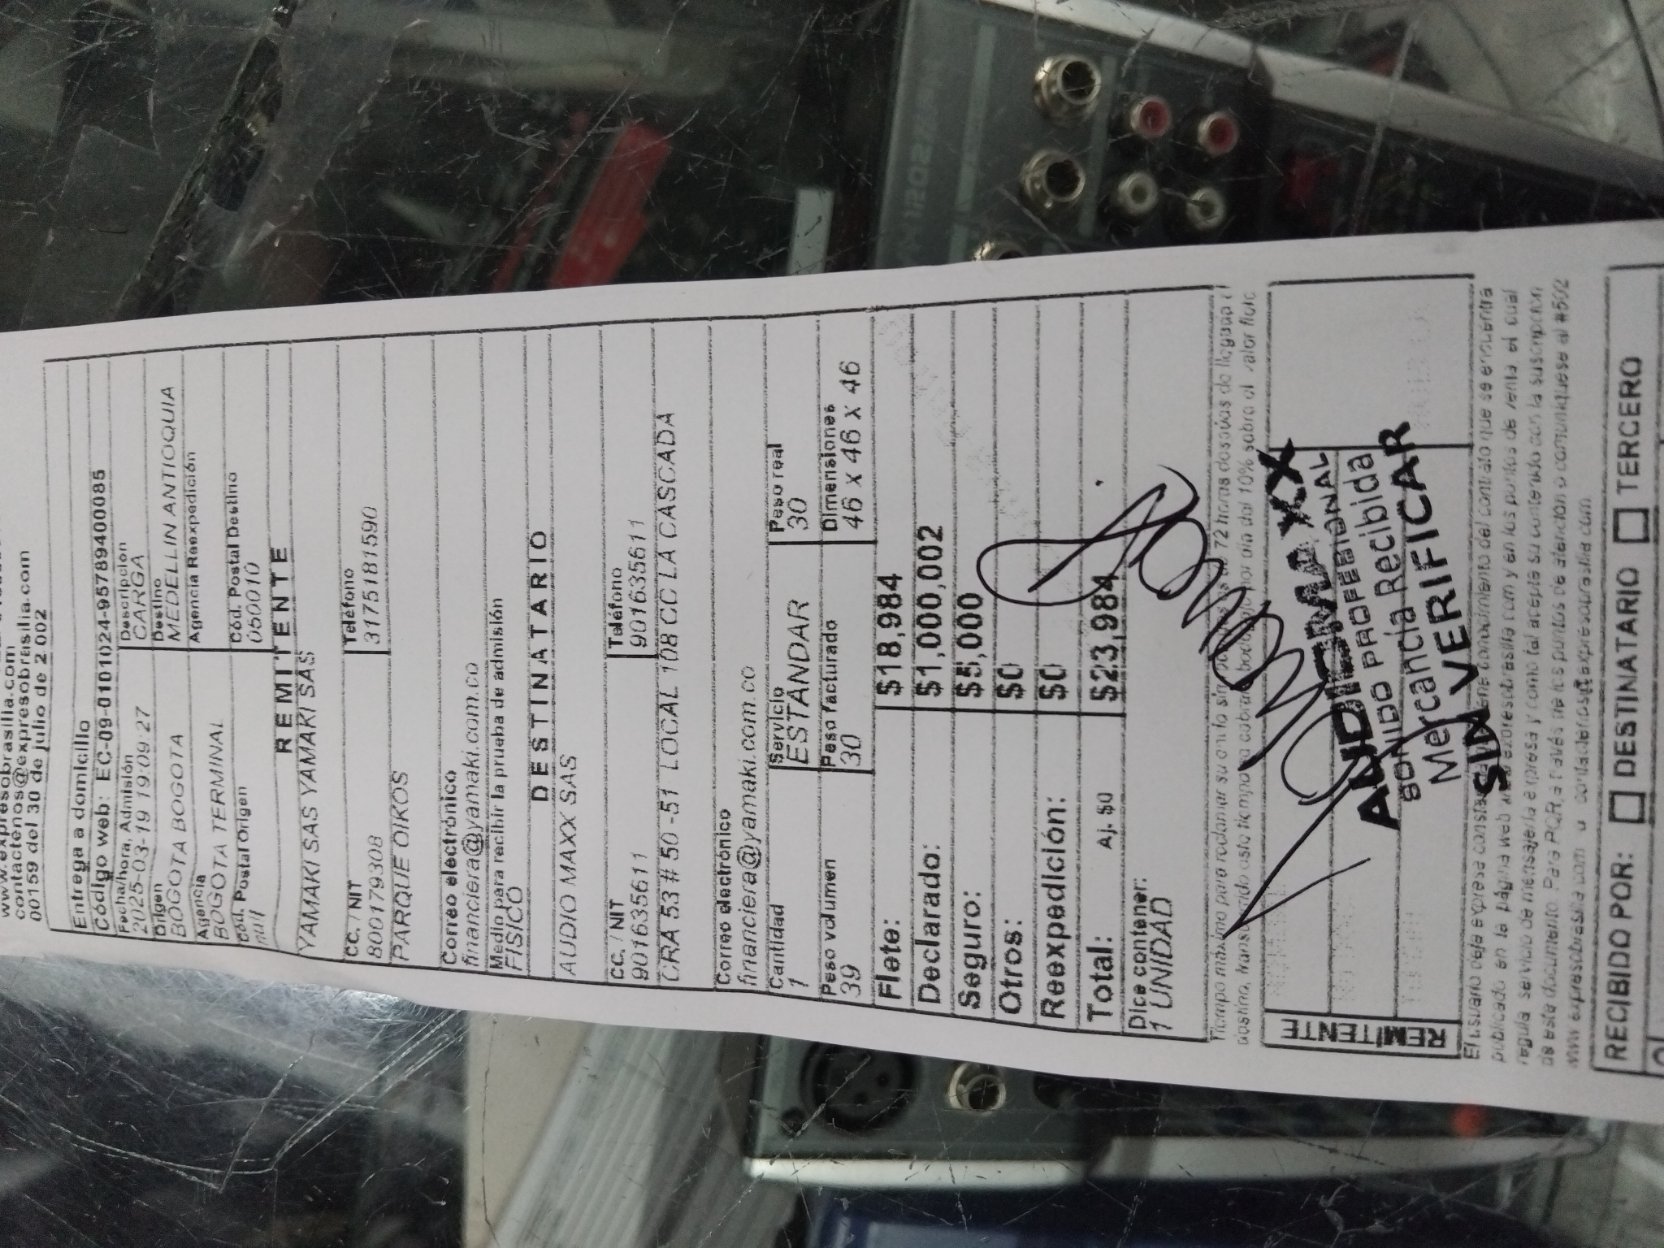 www.expresobrasilia.com
contactenos@expresobrasilia.com
00159 del 30 de julio de 2.002
Entrega a domicilio
Código web: EC-09-0101024-9578949400085
Fecha/hora, Admisión Descripción
2025-03-19 19:09:27 CARGA
Origen Destino
BOGOTA BOGOTA MEDELLIN ANTIOQUIA
Agencia Agencia Reexpedición
BOGOTA TERMINAL
Cód. Postal Origen Cód. Postal Destino
null 050010
REMITENTE
YAMAKI SAS YAMAKI SAS
CC. / NIT Teléfono
800179308 3175181590
PARQUE OIKOS
Correo electrónico
financiera@yamaki.com.co
Medio para recibir la prueba de admisión
FISICO
DESTINATARIO
AUDIO MAXX SAS
CC. / NIT Teléfono
901635611 901635611
CRA 53 # 50 -51 LOCAL 108 CC LA CASCADA
Correo electrónico
financiera@yamaki.com.co
Cantidad Servicio Peso real
1 ESTANDAR 30
Peso volumen Peso facturado Dimensiones
39 30 46 x 46 x 46
Flete: $18,984
Declarado: $1,000,002
Seguro: $5,000
Otros: $0
Reexpedición: $0
Total: Aj. $0 $23,984
Dice contener:
1 UNIDAD
Tiempo máximo para reclamar su envío sin 72 horas después de llegada al
destino, transcurrido este tiempo se cobrará por día del 10% sobre el valor flete
REMITENTE
AUDIOMAXX
SONIDO PROFESIONAL
Mercancía Recibida
SIN VERIFICAR
El usuario deja expresa constancia conocimiento del contrato que se encuentra
publicado en la página web www.expresobrasilia.com y en los puntos de venta el cual
regula servicio de mensajería expresa y como tal acepta su contenido con la suscripción
de este documento. Para PQR a través de los puntos de atención o comuníquese al #502
www.expresobrasilia.com o contactenos@expresobrasilia.com
RECIBIDO POR: DESTINATARIO TERCERO